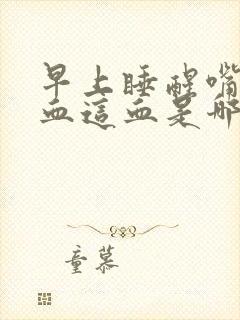 早上睡醒嘴
血這血是哪
童慕